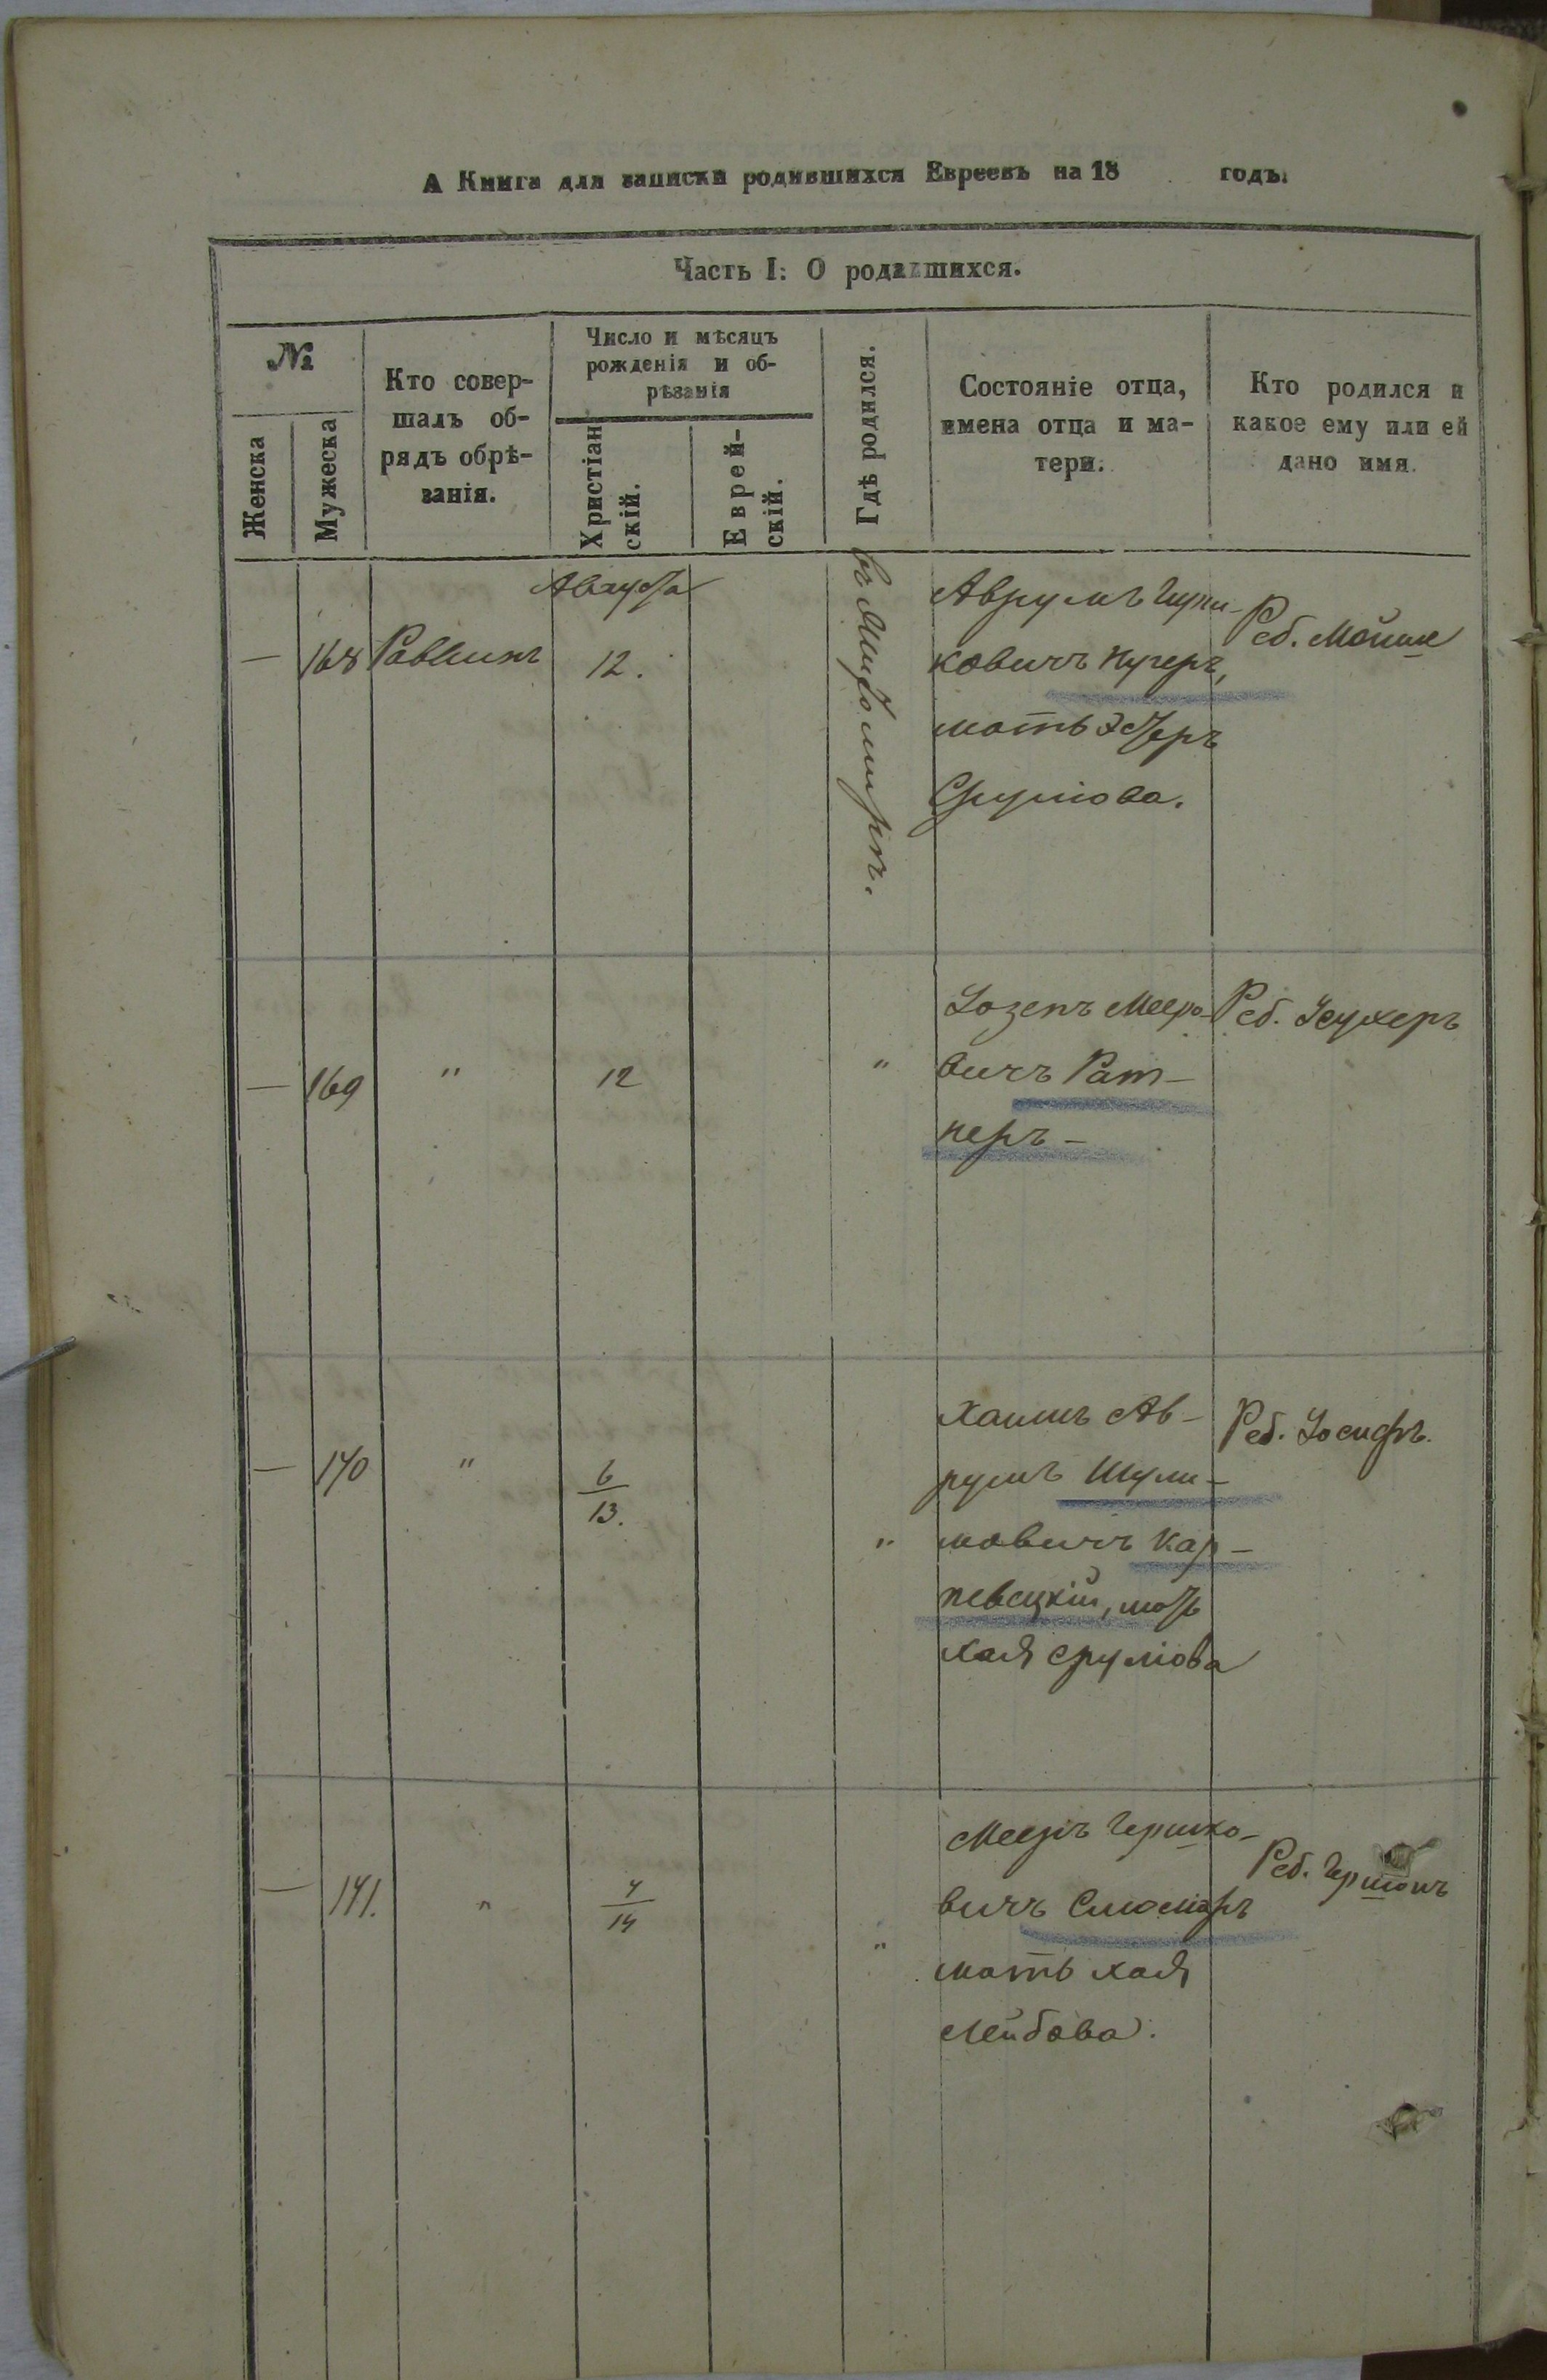 А Книга для записки родившихся Евреевъ на 18 годъ.
Часть I: О родившихся.
№
Женска
Мужеска
Кто совер-
шалъ об-
рядъ обрѣ-
занія.
Число и мѣсяцъ
рожденія и об-
рѣзанія
Христіан
скій.
Еврей-
скій.
Гдѣ родился.
Состояніе отца,
имена отца и ма-
тери.
Кто родился и
какое ему или ей
дано имя.
Августа
— 168 Раввинъ 12.
въ Житомирѣ.
Аврумъ
ковичъ Кучеръ,
мать Эстеръ
Срулюва.
Реб. Мойше
— 169 " 12 "
Іозепъ Мееро-
вичъ Рат-
неръ —
Реб. Исухеръ
— 170 " 6/13. "
Хаимъ Ав-
румъ Шули-
мовичъ Кар-
певецкій, мать
Хая Срулюва
Реб. Іосифъ.
— 171. " 7/14 "
Мееръ Гершко-
вичъ Смоляръ
мать Хая
Лейбова.
Реб. Гершонъ